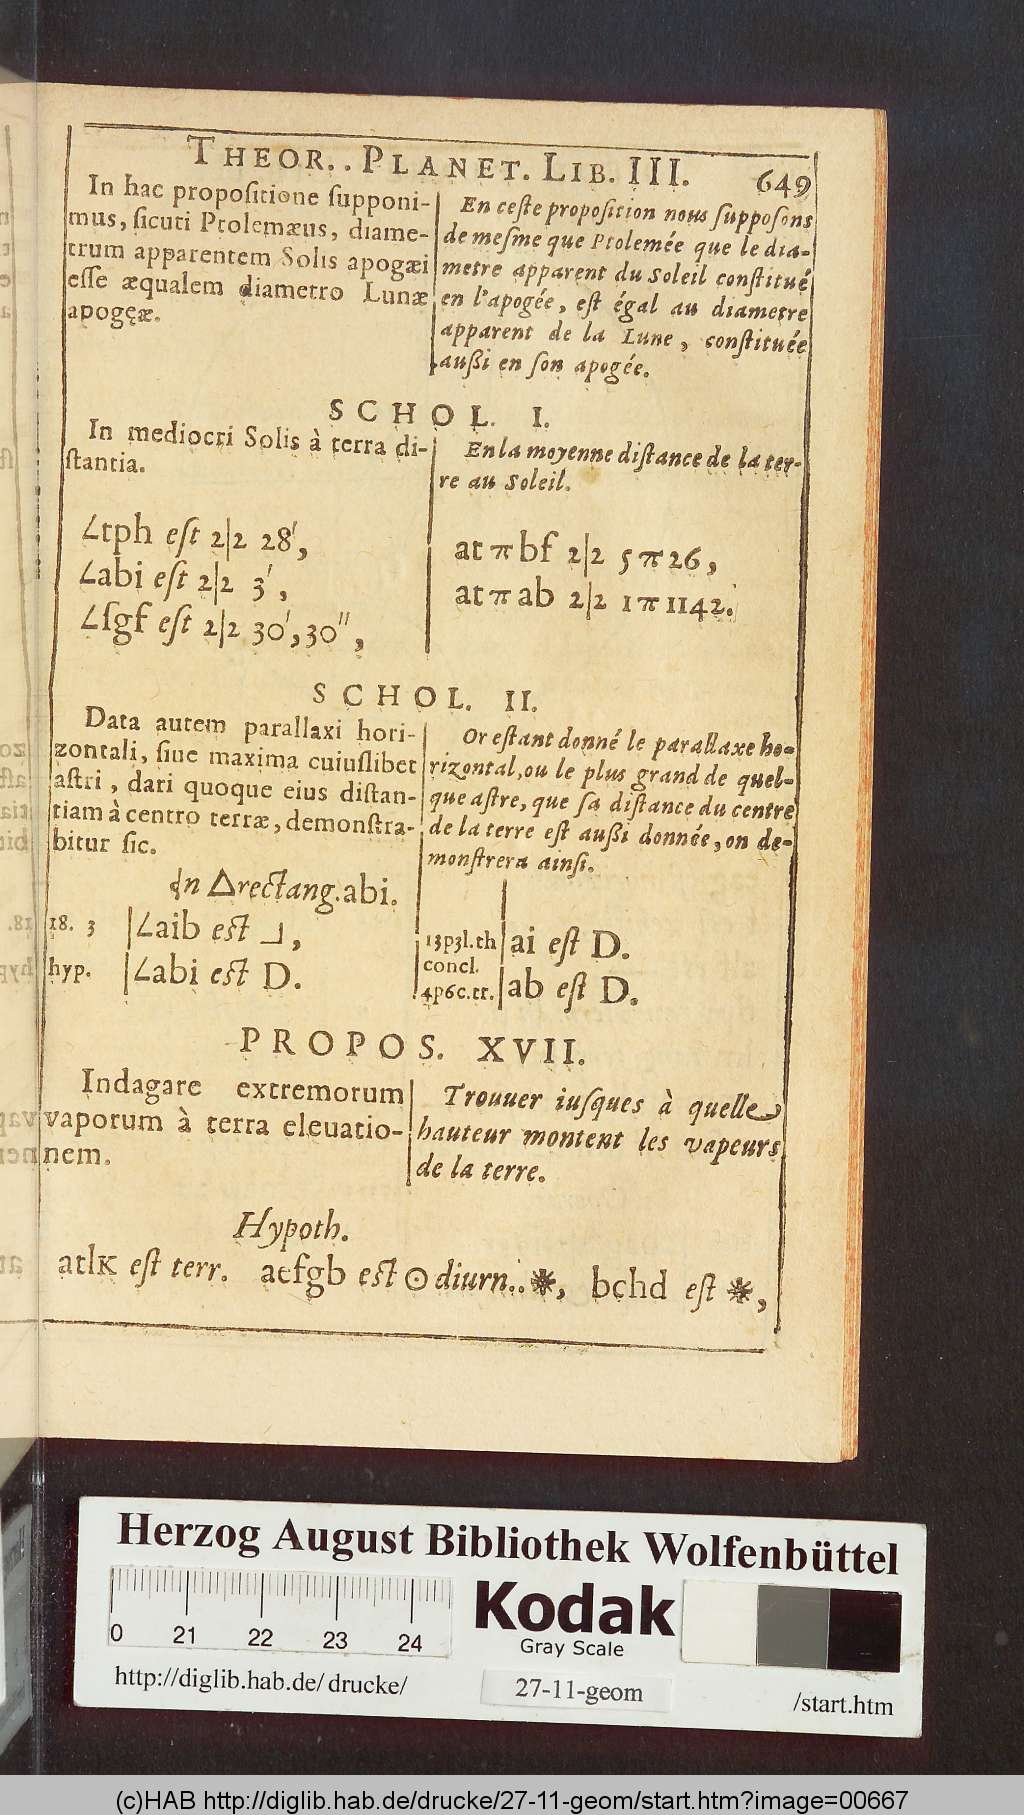 THEOR.. PLANET. LIB. III. 649
In hac propoſitione ſupponi-
mus, ſicuti Ptolemæus, diame-
trum apparentem Solis apogæi
eſſe æqualem diametro Lunæ
apogęæ.
En ceſte propoſition nous ſuppoſons
de meſme que Ptolemée que le dia-
metre apparent du Soleil conſtitué
en l'apogée, eſt égal au diametre
apparent de la Lune, conſtituée
außi en ſon apogée.
SCHOL. I.
In mediocri Solis à terra di-
ſtantia.
En la moyenne diſtance de la ter-
re au Soleil.
∠tph eſt 2|2 28′,
∠abi eſt 2|2 3′,
∠ſgf eſt 2|2 30′,30″,
at π bf 2|2 5 π 26,
at π ab 2|2 1 π 1142.
SCHOL. II.
Data autem parallaxi hori-
zontali, ſiue maxima cuiuſlibet
aſtri, dari quoque eius diſtan-
tiam à centro terræ, demonſtra-
bitur ſic.
Or eſtant donné le parallaxe ho-
rizontal, ou le plus grand de quel-
que aſtre, que ſa diſtance du centre
de la terre eſt außi donnée, on de-
monſtrera ainſi.
In △rectang. abi.
18. 3 | ∠aib eſt ⅃,
hyp. | ∠abi eſt D.
13p3l.th | ai eſt D.
concl.
4p6c.tr. | ab eſt D.
PROPOS. XVII.
Indagare extremorum
vaporum à terra eleuatio-
nem.
Trouuer iuſques à quelle
hauteur montent les vapeurs
de la terre.
Hypoth.
atlK eſt terr. aefgb eſt ⊙ diurn.. ✹, bchd eſt ✹,
Herzog August Bibliothek Wolfenbüttel
0 21 22 23 24
Kodak
Gray Scale
http://diglib.hab.de/drucke/ 27-11-geom /start.htm
(c)HAB http://diglib.hab.de/drucke/27-11-geom/start.htm?image=00667